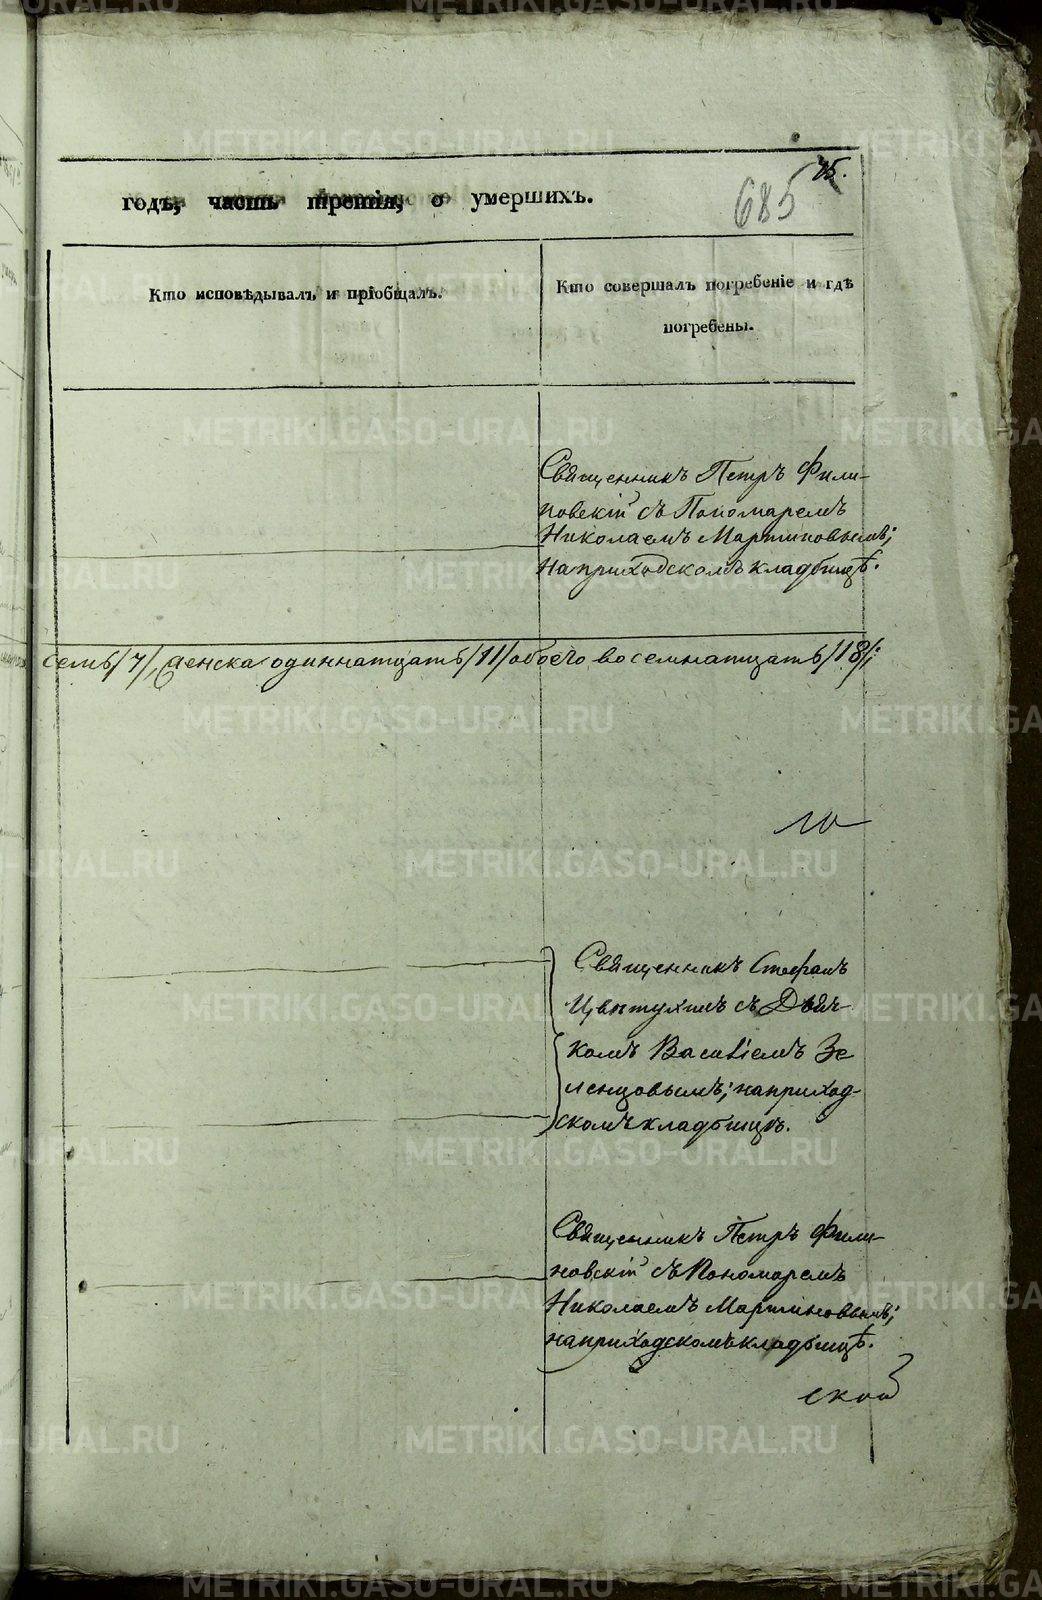 75.
685
годъ, часть третія, о умершихъ.
Кто исповѣдывалъ и пріобщалъ.
Кто совершалъ погребеніе и гдѣ
погребены.
Священникъ Петръ Фили-
повскій съ Пономаремъ
Николаемъ Мартиновымъ;
на приходскомъ кладбищѣ.
семь /7/, женска одиннатцать /11/ обоего восемнатцать /18/;
Священникъ Стефанъ
Цвѣтухинъ съ Дьяч-
комъ Василіемъ Зе
ленцовымъ; на приход-
скомъ кладбищѣ.
Священникъ Петръ Фили-
повскій съ Пономаремъ
Николаемъ Мартиновымъ;
на приходскомъ кладбищѣ.
ской
METRIKI.GASO-URAL.RU